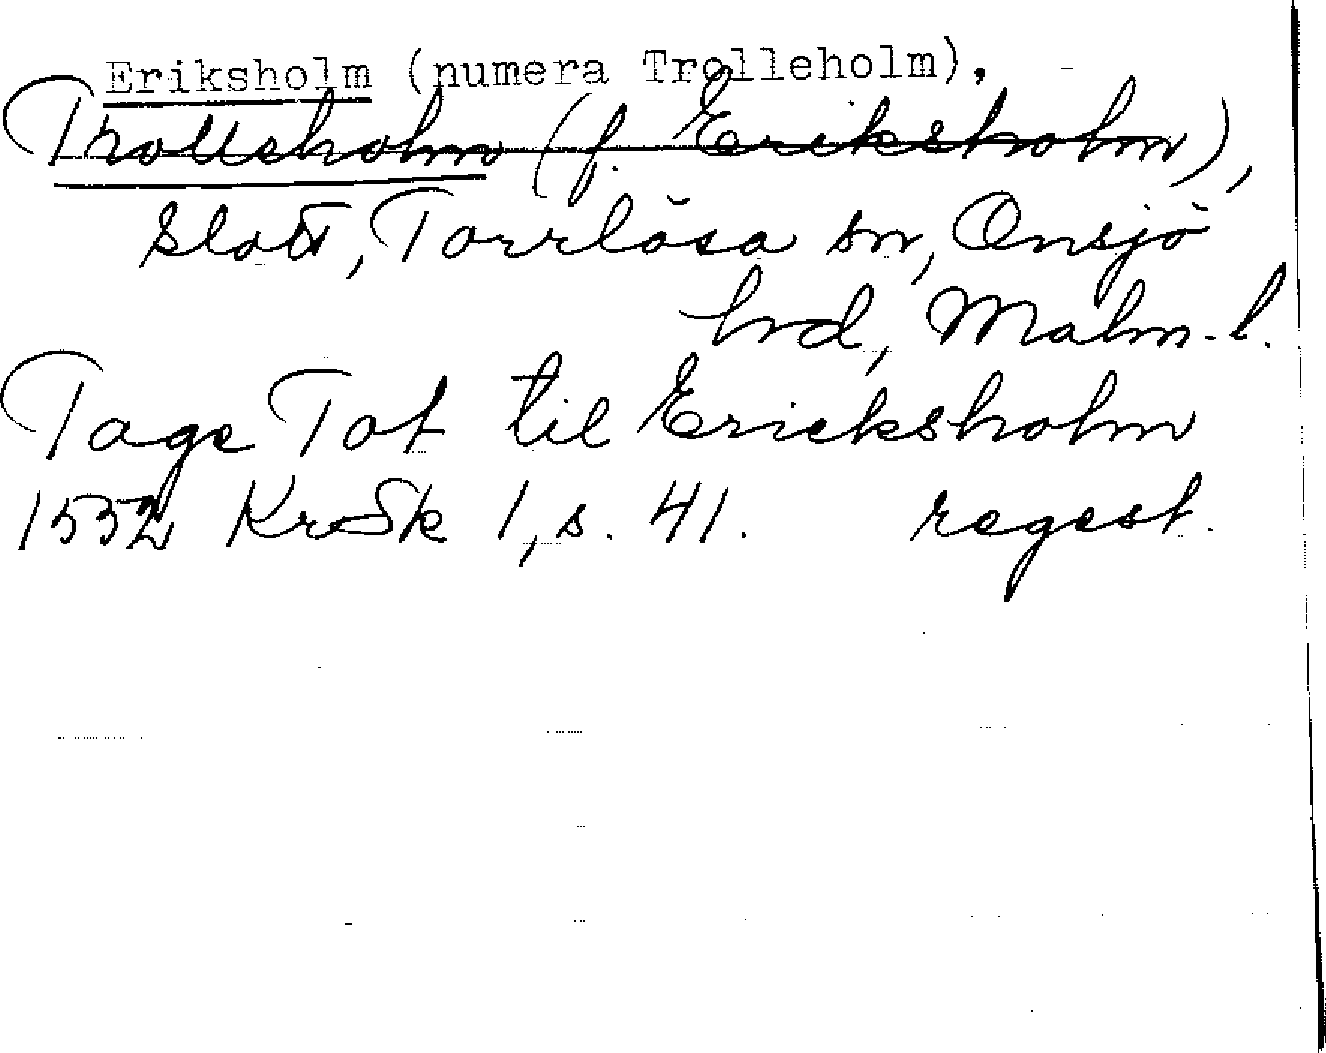 Eriksholm (numera Trolleholm),
Trolleholm (f. Eriksholm),
slott, Torrlösa sn, Onsjö
hd, Malm. l.
Tage Tot til Ericksholm
1532 KrSk 1, s. 41. regest.